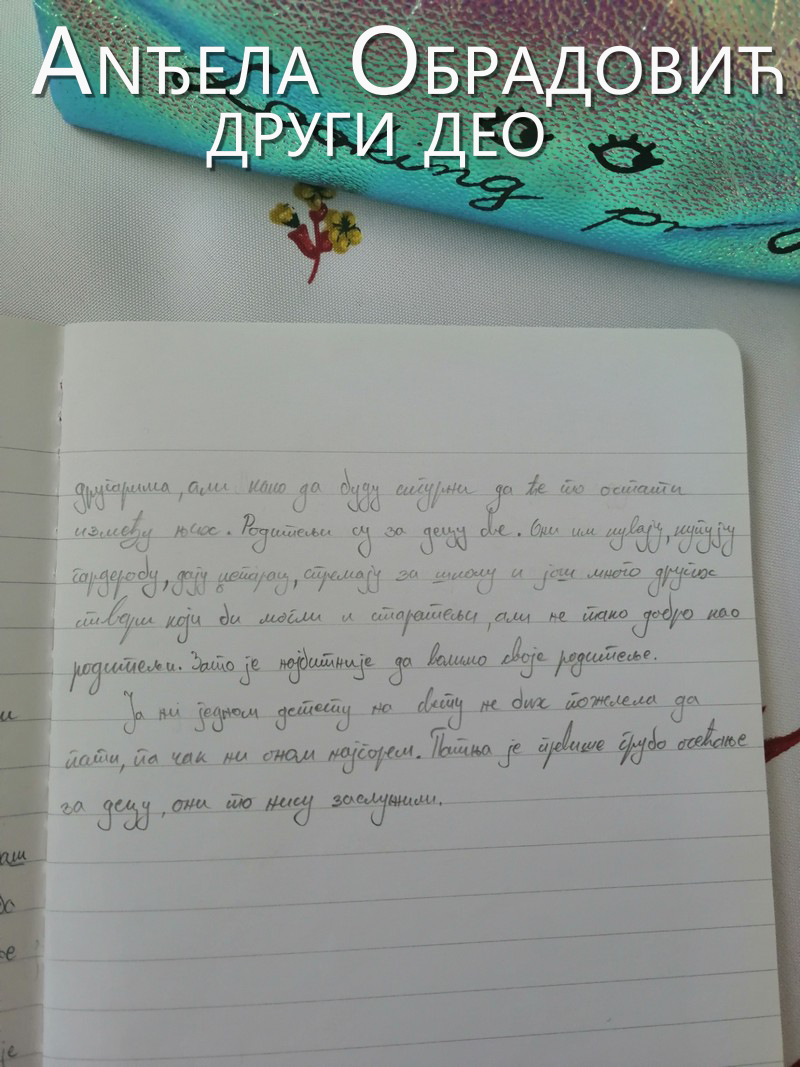 Анђела Обрадовић
други део
другарима, али како да буду сигурни да ће то остати
између њих. Родитељи су за децу све. Они им кувају, купују
гардеробу, дају џепарац, спремају за школу и још много других
ствари који би могли и старатељи, али не тако добро као
родитељи. Зато је најбитније да волимо своје родитеље.
Ја ни једном детету на свету не бих пожелела да
пати, па чак ни оном најгорем. Патња је превише грубо осећање
за децу, они то нису заслужили.